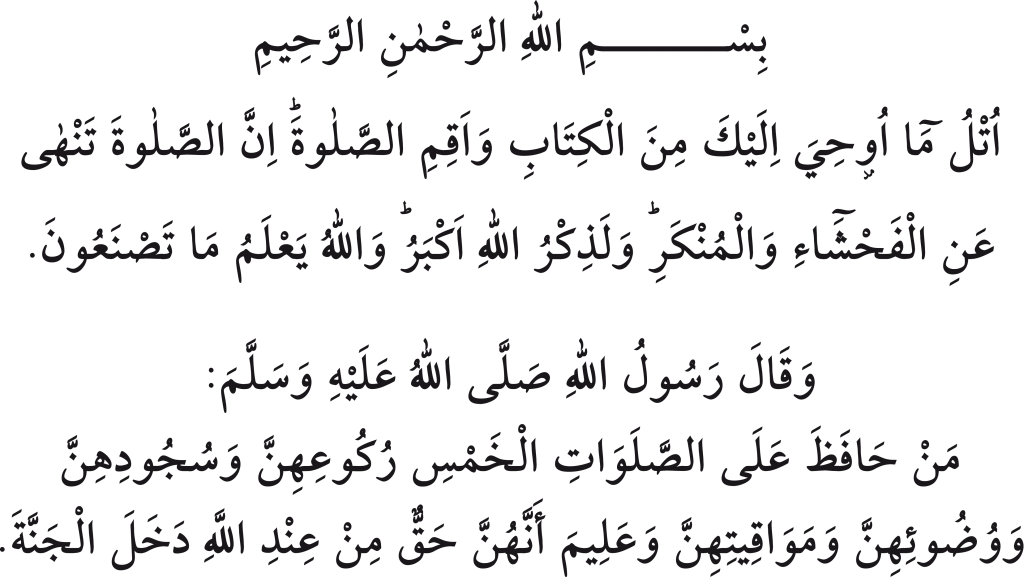 بِسْــــــــــــمِ اللهِ الرَّحْمٰنِ الرَّحِيمِ
اُتْلُ مَٓا اُو۫حِيَ اِلَيْكَ مِنَ الْكِتَابِ وَاَقِمِ الصَّلٰوةَۜ اِنَّ الصَّلٰوةَ تَنْهٰى
عَنِ الْفَحْشَٓاءِ وَالْمُنْكَرِۜ وَلَذِكْرُ اللهِ اَكْبَرُۜ وَاللهُ يَعْلَمُ مَا تَصْنَعُونَ.
وَقَالَ رَسُولُ اللهِ صَلَّى اللهُ عَلَيْهِ وَسَلَّمَ:
مَنْ حَافَظَ عَلَى الصَّلَوَاتِ الْخَمْسِ رُكُوعِهِنَّ وَسُجُودِهِنَّ
وَوُضُوئِهِنَّ وَمَوَاقِيتِهِنَّ وَعَلِيمَ أَنَّهُنَّ حَقٌّ مِنْ عِنْدِ اللَّهِ دَخَلَ الْجَنَّةَ.